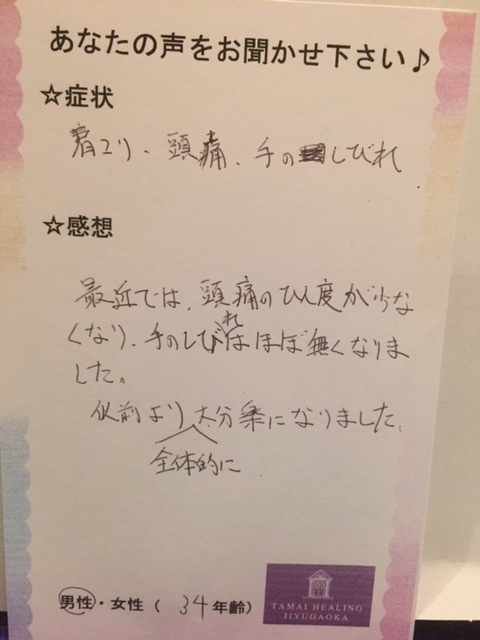 あなたの声をお聞かせ下さい♪
☆症状
肩コリ、頭痛、手のしびれ
☆感想
最近では、頭痛のひん度が少な
くなり、手のしびれはほぼ無くなりま
した。
以前より全体的に大分楽になりました。
男性・女性（ 34年齢）
TAMAI HEALING
JIYUGAOKA